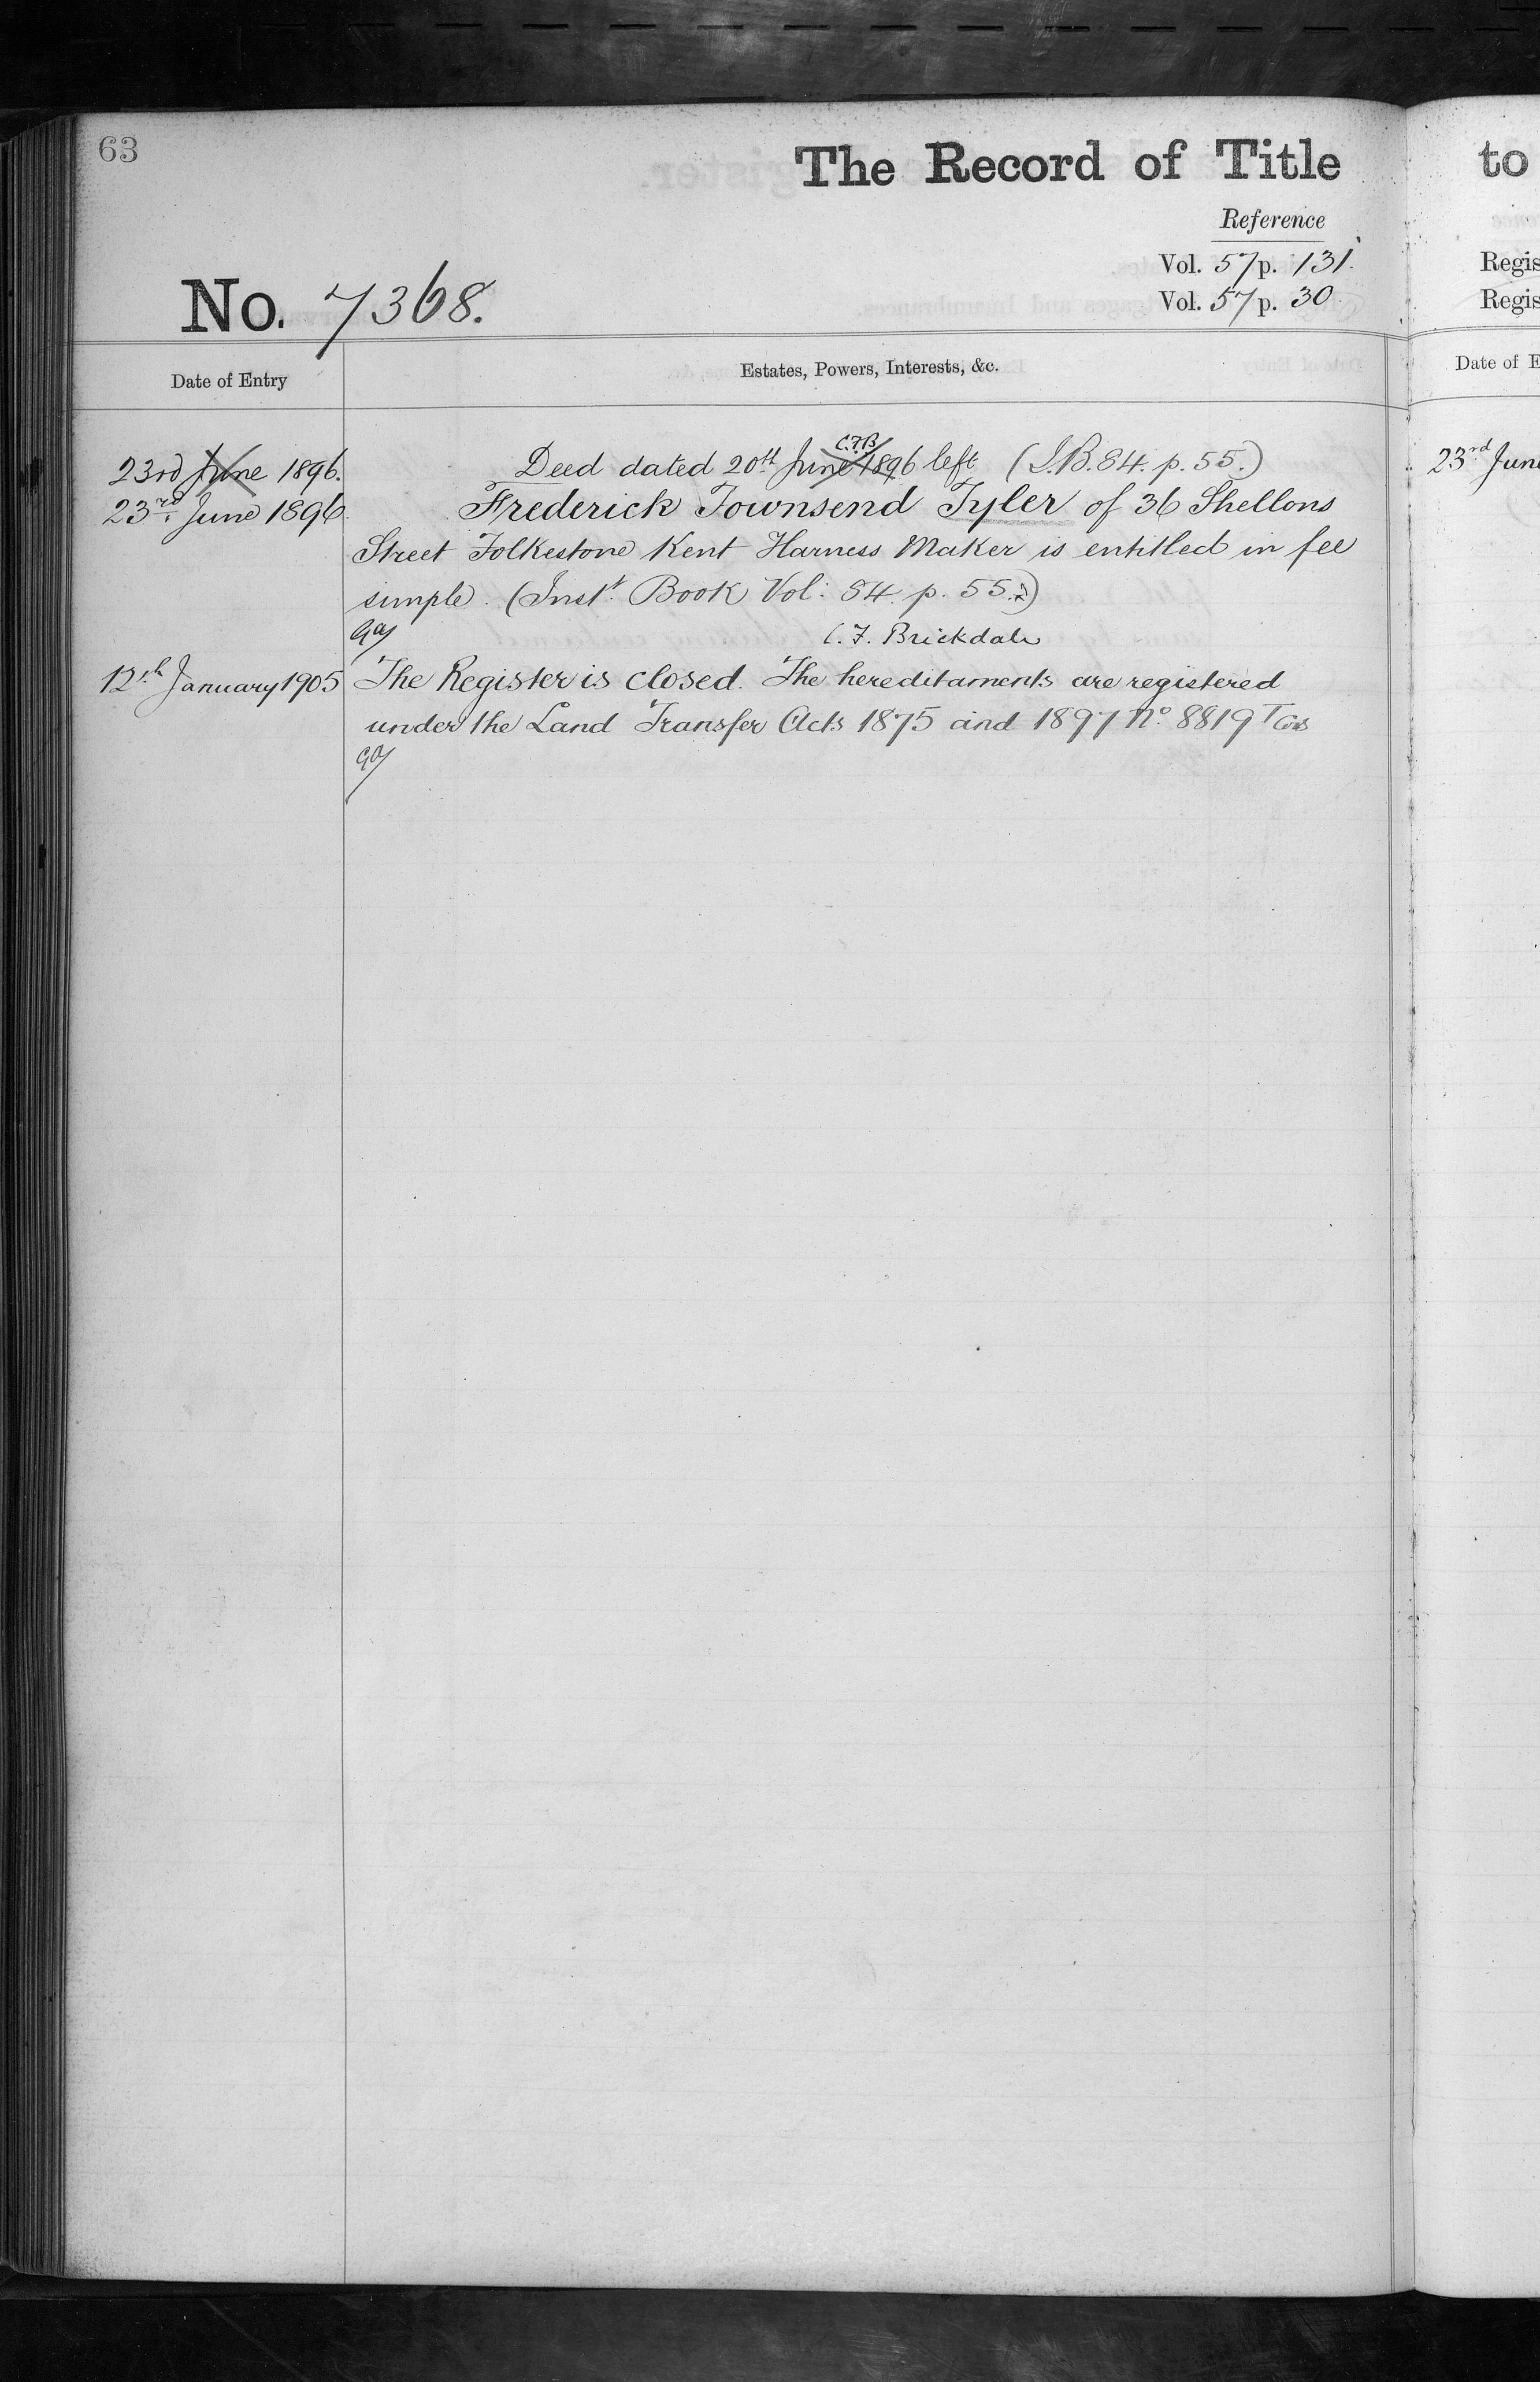 63
The Record of Title
to
Reference
Vol. 57 p. 131.
Regis
Vol. 57 p. 30
Regis
No. 7368.
Date of Entry
Estates, Powers, Interests, &c.
Date of E
23rd June 1896.
C.F.B
Deed dated 20th June 1896 left (I.B. 84. p. 55.)
23rd June
23rd June 1896
Frederick Townsend Tyler of 36 Shellons
Street Folkestone Kent Harness Maker is entitled in fee
simple. (Inst. Book Vol: 84. p. 55.)
C. F. Brickdale
12th January 1905
The Register is closed. The hereditaments are registered
under the Land Transfer Acts 1875 and 1897 No. 8819